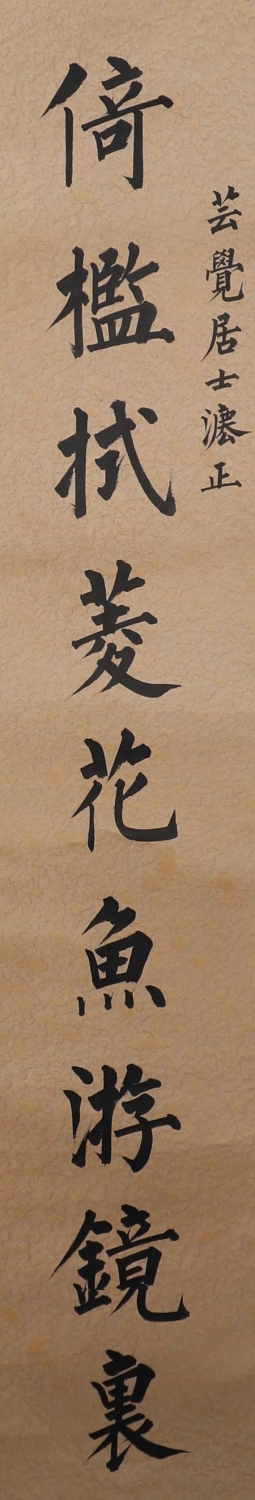 芸覺居士灋正
倚檻拭菱花魚游鏡裏